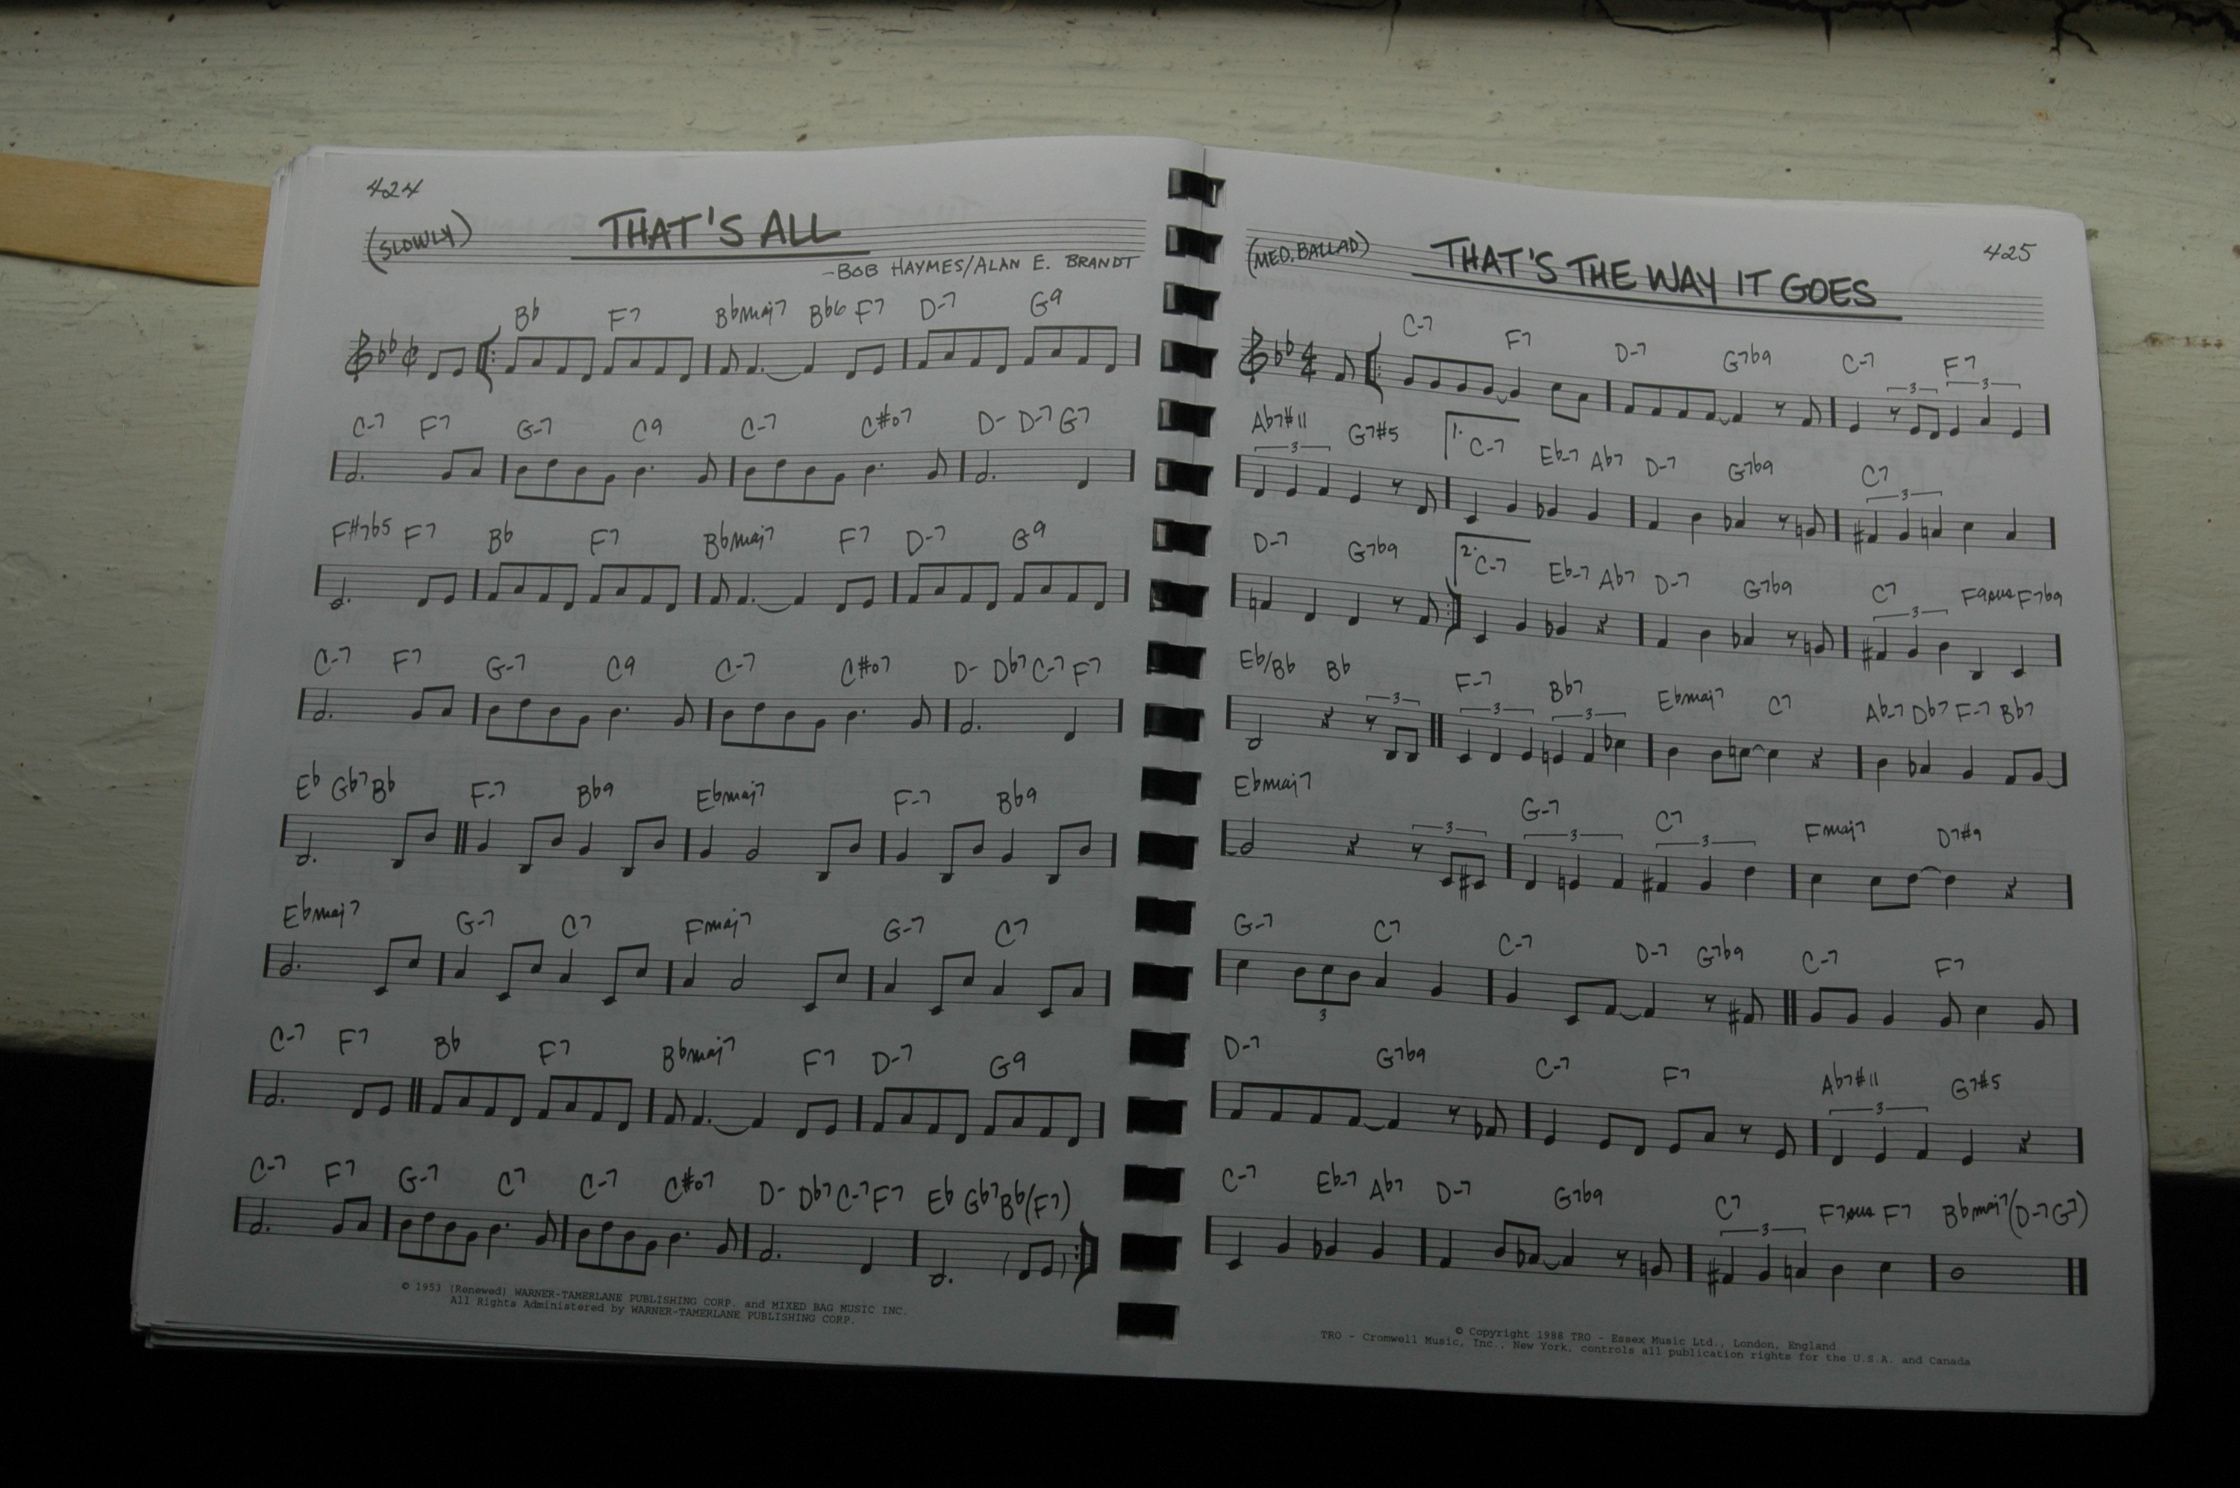 424
THAT'S ALL
(SLOWLY)
-BOB HAYMES/ALAN E. BRANDT
Bb F7 Bbmaj7 Bb6 F7 D-7 G9
C-7 F7 G-7 C9 C-7 C#o7 D- D-7 G7
F#7b5 F7 Bb F7 Bbmaj7 F7 D-7 G9
C-7 F7 G-7 C9 C-7 C#o7 D- Db7 C-7 F7
Eb Gb7 Bb F-7 Bb9 Ebmaj7 F-7 Bb9
Ebmaj7 G-7 C7 Fmaj7 G-7 C7
C-7 F7 Bb F7 Bbmaj7 F7 D-7 G9
C-7 F7 G-7 C7 C-7 C#o7 D- Db7 C-7 F7 Eb Gb7 Bb (F7)
© 1953 (Renewed) WARNER-TAMERLANE PUBLISHING CORP. and MIXED BAG MUSIC INC.
All Rights Administered by WARNER-TAMERLANE PUBLISHING CORP.
425
THAT'S THE WAY IT GOES
(MED. BALLAD)
C-7 F7 D-7 G7b9 C-7 F7
4 4 3 3
Ab7#11 G7#5 1. C-7 Eb-7 Ab7 D-7 G7b9 C7
3 3
D-7 G7b9 2. C-7 Eb-7 Ab7 D-7 G7b9 C7 F9sus F7b9
3
Eb/Bb Bb F-7 Bb7 Ebmaj7 C7 Ab-7 Db7 F-7 Bb7
3 3 3
Ebmaj7 G-7 C7 Fmaj7 D7#9
3 3 3
G-7 C7 C-7 D-7 G7b9 C-7 F7
3
D-7 G7b9 C-7 F7 Ab7#11 G7#5
3
C-7 Eb-7 Ab7 D-7 G7b9 C7 F7sus F7 Bbmaj7 (D-7 G7)
3
© Copyright 1988 TRO - Essex Music Ltd., London, England
TRO - Cromwell Music, Inc., New York, controls all publication rights for the U.S.A. and Canada